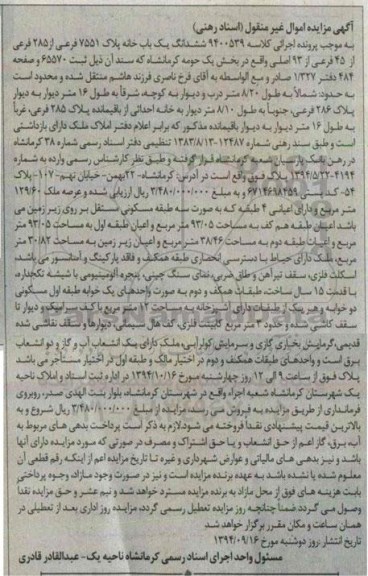 آگهی مزایده اموال غیر منقول (اسناد رهنی)
به موجب پرونده اجرائی کلاسه ۹۴۰۰۵۳۹ ششدانگ یک باب خانه پلاک ۷۵۵۱ فرعی از ۲۸۵ فرعی
از ۴۵ فرعی از ۹۳ اصلی واقع در بخش یک حومه کرمانشاه که سند آن ذیل ثبت ۶۵۵۷۰ و صفحه
۴۸۴ دفتر ۱/۳۲۷ صادر و مع الواسطه به آقای فرخ ناصری فرزند هاشم منتقل شده و محدود است
به حدود: شمالاً به طول ۸/۲۰ متر درب و دیوار به کوچه، شرقاً به طول ۱۶ متر دیوار به دیوار
پلاک ۲۸۶ فرعی، جنوباً به طول ۸/۱۰ متر دیوار به خانه احداثی از باقیمانده پلاک ۲۸۵ فرعی، غرباً
به طول ۱۶ متر دیوار به دیوار باقیمانده مذکور که برابر اعلام دفتر املاک ملک دارای بازداشتی
است و طبق سند رهنی شماره ۱۲۴۸۷-۱۳۸۳/۸/۱۳ تنظیمی دفتر اسناد رسمی شماره ۳۸ کرمانشاه
در رهن بانک پارسیان شعبه کرمانشاه قرار گرفته و طبق نظر کارشناس رسمی وارده به شماره
۴۱۹۴-۱۳۹۴/۵/۲۲ پلاک فوق واقع است در آدرس: کرمانشاه- ۲۲بهمن- خیابان نهم- ۱۰۷- پلاک
۵۴- کد پستی ۶۷۱۴۶۱۸۴۵۹ و به مبلغ ۳/۴۸۰/۰۰۰/۰۰۰ ریال ارزیابی شده و عرصه ملک ۱۲۹/۶۰
متر مربع و دارای اعیانی ۴ طبقه که به صورت سه طبقه مسکونی مستقل بر روی زیر زمین می
باشد اعیان طبقه هم کف به مساحت ۹۳/۰۵ متر مربع و اعیان طبقه اول به مساحت ۹۳/۰۵ متر
مربع و اعیان طبقه دوم به مساحت ۳۸/۴۶ متر مربع و اعیان زیر زمین به مساحت ۳۰/۸۲ متر
مربع، ملک دارای حیاط با دسترسی انحصاری طبقه همکف و فاقد پارکینگ و آسانسور می باشد،
اسکلت فلزی، سقف تیرآهن و طاق ضربی، نمای سنگ چینی، پنجره آلومینیومی با شیشه تکجداره،
با قدمت ۱۵ سال ساخت، طبقات همکف و دوم به صورت واحدهای یک خوابه طبقه اول مسکونی
دو خوابه و هر یک از طبقات دارای آشپزخانه به مساحت ۱۲ متر مربع با کف سرامیک و دیوار تا
سقف کاشی شده و حدود ۳ متر مربع کابینت فلزی، کف هال سیمانی، دیوارها و سقف نقاشی شده
قدیمی، گرمایش بخاری گازی و سرمایش کولر آبی، ملک دارای یک انشعاب آب و گاز و دو انشعاب
برق است و واحدهای طبقات همکف و دوم در اختیار مالک و طبقه اول در اختیار مستأجر می باشد
پلاک فوق از ساعت ۹ الی ۱۲ روز چهارشنبه مورخ ۱۳۹۴/۱۰/۱۶ در اداره ثبت اسناد و املاک ناحیه
یک شهرستان کرمانشاه شعبه اجراء واقع در شهرستان کرمانشاه، بلوار بنت الهدی صدر، روبروی
فرمانداری از طریق مزایده به فروش می رسد، مزایده از مبلغ ۳/۴۸۰/۰۰۰/۰۰۰ ریال شروع و به
بالاترین قیمت پیشنهادی نقداً فروخته می شود لازم به ذکر است پرداخت بدهی های مربوط به
آب، برق، گاز اعم از حق انشعاب و یا حق اشتراک و مصرف در صورتی که مورد مزایده دارای آنها
باشد و نیز بدهی های مالیاتی و عوارض شهرداری و غیره تا تاریخ مزایده اعم از اینکه رقم قطعی آن
معلوم شده یا نشده باشد به عهده برنده مزایده است و نیز در صورت وجود مازاد، وجوه پرداختی
بابت هزینه های فوق از محل مازاد به برنده مزایده مسترد خواهد شد و نیم عشر و حق مزایده نقداً
وصول می گردد ضمناً چنانچه روز مزایده تعطیل رسمی گردد، مزایده روز اداری بعد از تعطیلی در
همان ساعت و مکان مقرر برگزار خواهد شد
تاریخ انتشار :روز دوشنبه مورخ ۱۳۹۴/۰۹/۱۶
مسئول واحد اجرای اسناد رسمی کرمانشاه ناحیه یک- عبدالقادر قادری